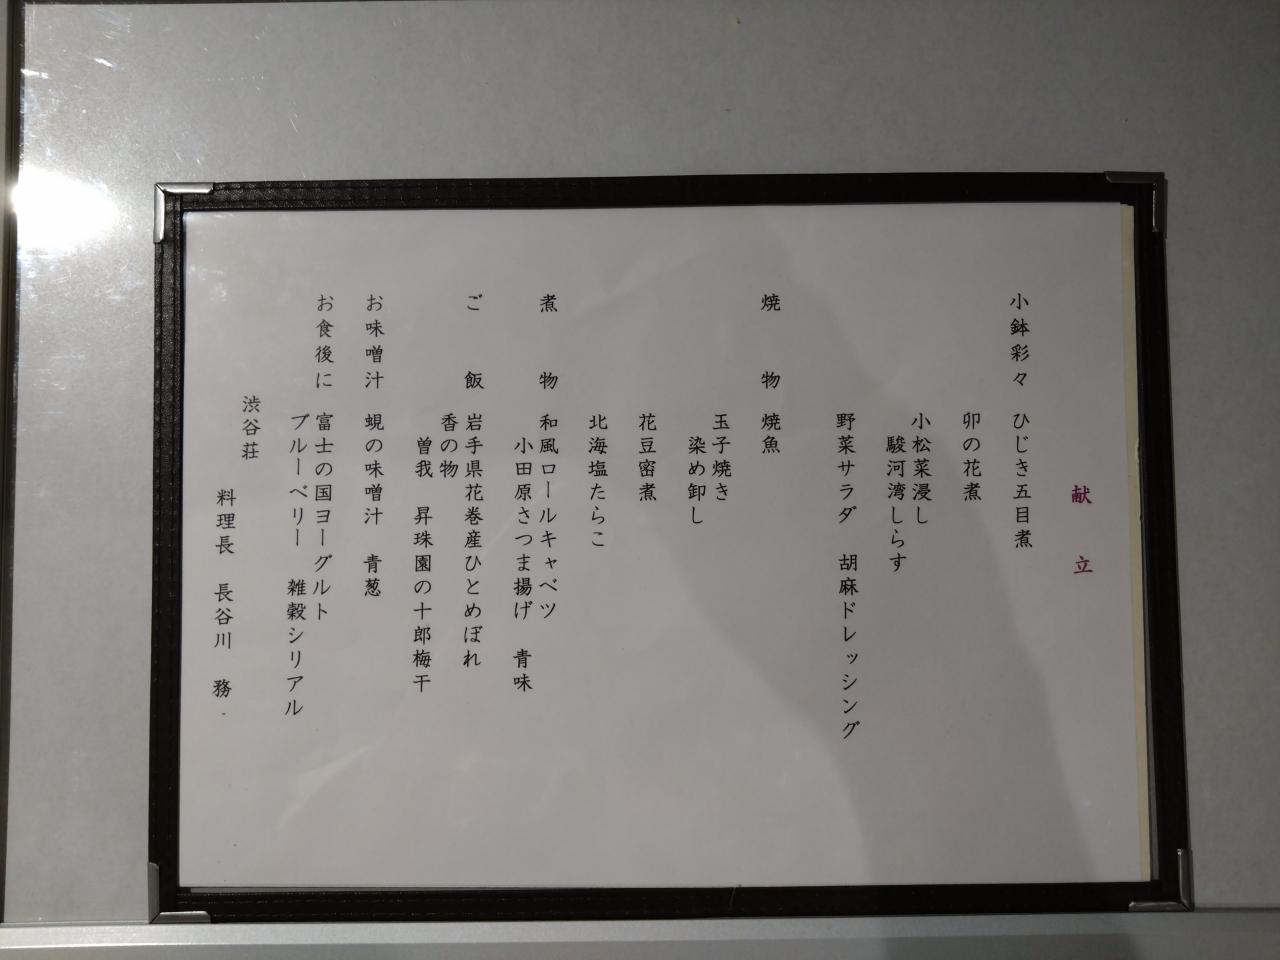 献　立
小鉢彩々　ひじき五目煮
卯の花煮
小松菜浸し
駿河湾しらす
野菜サラダ　胡麻ドレッシング
焼　物　焼魚
玉子焼き
染め卸し
花豆密煮
北海塩たらこ
煮　物　和風ロールキャベツ
小田原さつま揚げ　青味
ご　飯　岩手県花巻産ひとめぼれ
香の物
曽我　昇珠園の十郎梅干
お味噌汁　蜆の味噌汁　青葱
お食後に　富士の国ヨーグルト
ブルーベリー　雑穀シリアル
渋谷荘
料理長　長谷川　務